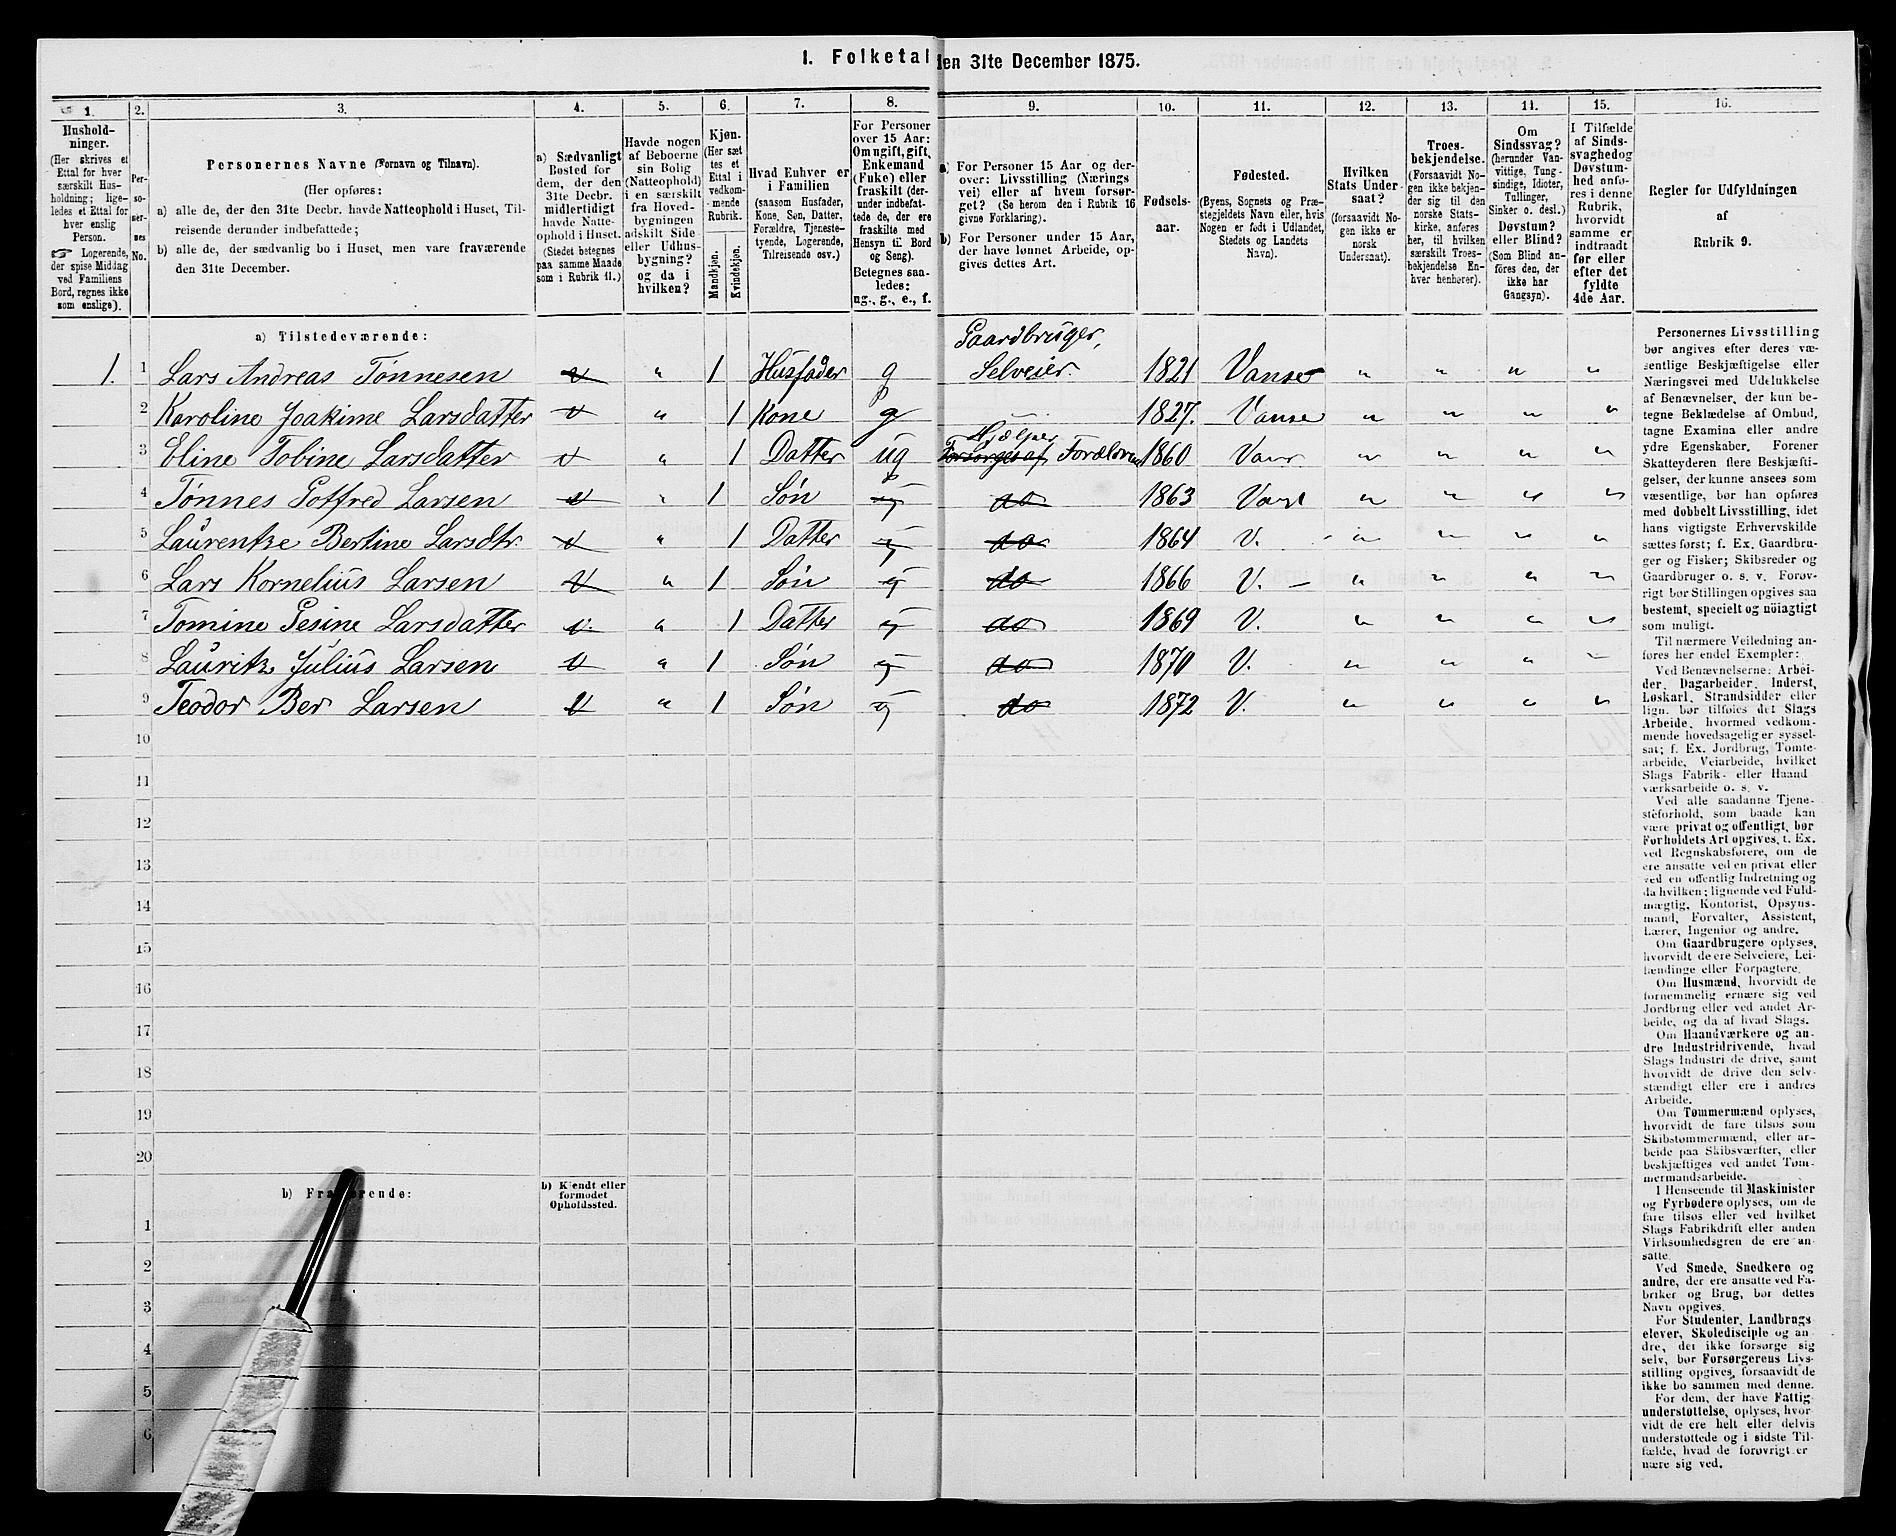 I. Folketal den 31te December 1875.
1.
Hushold-
ninger.
(Her skrives et
Ettal for hver
særskilt Hus-
holdning; lige-
ledes et Ettal for
hver enslig
Person.
☞ Logerende,
der spise Middag
ved Familiens
Bord, regnes ikke
som enslige).
2.
Per-
so-
ner-
nes
No.
3.
Personernes Navne (Fornavn og Tilnavn).
(Her opføres:
a) alle de, der den 31te Decbr. havde Natteophold i Huset, Til-
reisende derunder indbefattede;
b) alle de, der sædvanlig bo i Huset, men vare fraværende
den 31te December.
4.
a) Sædvanligt
Bosted for
dem, der den
31te Decbr.
midlertidigt
havde Natte-
ophold i Huset.
(Stedet betegnes
paa samme Maade
som i Rubrik 11.)
5.
Havde nogen
af Beboerne
sin Bolig
(Natteophold)
i en særskilt
fra Hoved-
bygningen
adskilt Side-
eller Udhus-
bygning?
og da i
hvilken?
6.
Kjøn.
(Her sæt-
tes et
Ettal i
vedkom-
mende
Rubrik.
Mandkjøn.
Kvindekjøn.
7.
Hvad Enhver er
i Familien
(saasom Husfader,
Kone, Søn, Datter,
Forældre, Tjeneste-
tyende, Logerende,
Tilreisende osv.)
8.
For Personer
over 15 Aar:
Om ugift, gift,
Enkemand
(Enke) eller
fraskilt (der-
under indbefat-
tede de, der ere
fraskilte med
Hensyn til Bord
og Seng).
Betegnes saa-
ledes:
ug., g., e., f.
9.
a) For Personer 15 Aar og der-
over: Livsstilling (Nærings
vei) eller af hvem forsør-
get? (Se herom den i Rubrik 16
givne Forklaring).
b) For Personer under 15 Aar,
der have lønnet Arbeide, op-
gives dettes Art.
10.
Fødsels-
aar.
11.
Fødested.
(Byens, Sognets og Præ-
stegjeldets Navn eller, hvis
Nogen er født i Udlandet,
Stedets og Landets
Navn).
12.
Hvilken
Stats Under-
saat?
(forsaavidt No-
gen ikke er
norsk
Undersaat).
13.
Troes-
bekjendelse.
(Forsaavidt No-
gen ikke bekjen-
der sig til den
norske Stats-
kirke, anføres
her, til hvilken
særskilt Troes-
bekjendelse En-
hver henhører).
14.
Om
Sindssvag?
(herunder Van-
vittige, Tung-
sindige, Idioter,
Tullinger,
Sinker o. desl.)
Døvstum?
eller Blind?
(Som Blind an-
føres den, der
ikke har
Gangsyn).
15.
I Tilfælde
af Sinds-
svaghed og
Døvstum-
hed anfø-
res i denne
Rubrik,
hvorvidt
samme er
indtraadt
før eller
efter det
fyldte
4de Aar.
16.
Regler for Udfyldningen
af
Rubrik 9.
a) Tilstedeværende:
Gaardbruger,
1. 1 Lars Andreas Tønnesen v " 1 Husfader g Selveier. 1821 Vanse " " " "
2 Karoline Joakime Larsdatter v " 1 Kone g 1827. Vanse " " " "
Hjælper
3 Eline Tobine Larsdatter v " 1 Datter ug Forsørges af Forældrene 1860 " " " "
4 Tønnes Gotfred Larsen v " 1 Søn do 1863 " " " "
5 Laurentze Bertine Larsdtr. v " 1 Datter do 1864 V. " " " "
6 Lars Kornelius Larsen v " 1 Søn do 1866 V. " " " "
7 Tomine Gesine Larsdatter v " 1 Datter do 1869 V. " " " "
8 Lauritz Julius Larsen v " 1 Søn do 1870 V. " " " "
9 Teodor Ber Larsen v " 1 Søn do 1872 V. " " " "
10
11
12
13
14
15
16
17
18
19
20
b) Fraværende:
b) Kjendt eller
formodet
Opholdssted.
1
2
3
4
5
6
Personernes Livsstilling
bør angives efter deres væ-
sentlige Beskjæftigelse eller
Næringsvei med Udelukkelse
af Benævnelser, der kun be-
tegne Beklædelse af Ombud,
tagne Examina eller andre
ydre Egenskaber. Forener
Skatteyderen flere Beskjæfti-
gelser, der kunne ansees som
væsentlige, bør han opføres
med dobbelt Livsstilling, idet
hans vigtigste Erhvervskilde
sættes først; f. Ex. Gaardbru-
ger og Fisker; Skibsreder og
Gaardbruger o. s. v. Forøv-
rigt bør Stillingen opgives saa
bestemt, specielt og nøiagtigt
som muligt.
Til nærmere Veiledning an-
føres her endel Exempler:
Ved Benævnelserne: Arbei-
der, Dagarbeider, Inderst,
Løskarl, Strandsidder eller
lign. bør tilføies det Slags
Arbeide, hvormed vedkom-
mende hovedsagelig er syssel-
sat; f. Ex. Jordbrug, Tomte-
arbeide, Veiarbeide, hvilket
Slags Fabrik- eller Haand-
værksarbeide o. s. v.
Ved alle saadanne Tjene-
steforhold, som baade kan
være privat og offentligt, bør
Forholdets Art opgives, t. Ex.
ved Regnskabsførere, om de
ere ansatte ved en privat eller
ved en offentlig Indretning og
da hvilken; lignende ved Fuld-
mægtig, Kontorist, Opsyns-
mand, Forvalter, Assistent,
Lærer, Ingeniør og andre.
Om Gaardbrugere oplyses,
hvorvidt de ere Selveiere, Lei-
lændinge eller Forpagtere.
Om Husmænd, hvorvidt de
fornemmelig ernære sig ved
Jordbrug eller ved andet Ar-
beide, og da af hvad Slags.
Om Haandværkere og an-
dre Industridrivende, hvad
Slags Industri de drive, samt
hvorvidt de drive den selv-
stændigt eller ere i andres
Arbeide.
Om Tømmermænd oplyses,
hvorvidt de fare tilsøs som
Skibstømmermænd, eller ar-
beide paa Skibsværfter, eller
beskjæftiges ved andet Tøm-
mermandsarbeide.
I Henseende til Maskinister
og Fyrbødere oplyses, om de
fare tilsøs eller ved hvilket
Slags Fabrikdrift eller anden
Virksomhedsgren de ere an-
satte.
Ved Smede, Snedkere og
andre, der ere ansatte ved Fa-
briker og Brug, bør dettes
Navn opgives.
For Studenter, Landbrugs-
elever, Skoledisciple og an-
dre, der ikke forsørge sig
selv, bør Forsørgerens Livs-
stilling opgives, forsaavidt de
ikke bo sammen med denne.
For dem, der have Fattig-
understøttelse, oplyses, hvor-
vidt de ere helt eller delvis
understøttede og i sidste Til-
fælde, hvad de forøvrigt er-
nære sig ved.